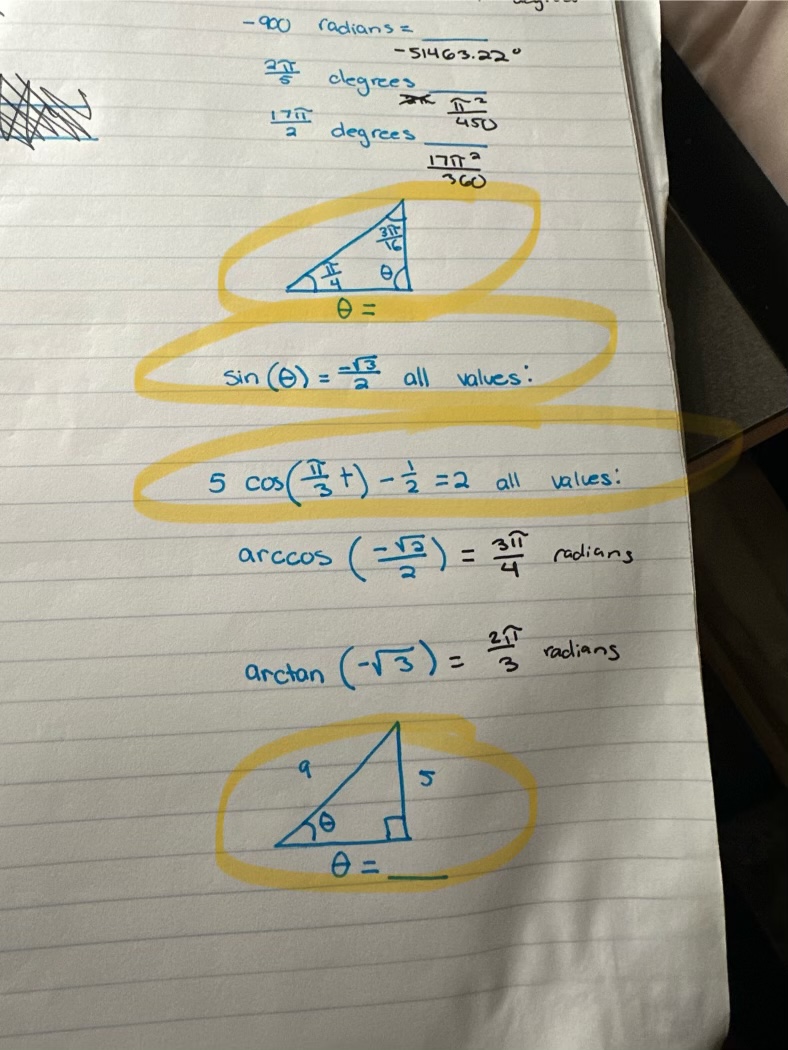 -900 radians = ____
-51463.22°
2π/5 degrees ____
π²/450
17π/2 degrees ____
17π²/360
3π/16
π/4 θ
θ =
sin(θ) = -√3/2 all values:
5 cos(π/3 t) - 1/2 = 2 all values:
arccos (-√2/2) = 3π/4 radians
arctan (-√3) = 2π/3 radians
9 5
θ
θ = ____